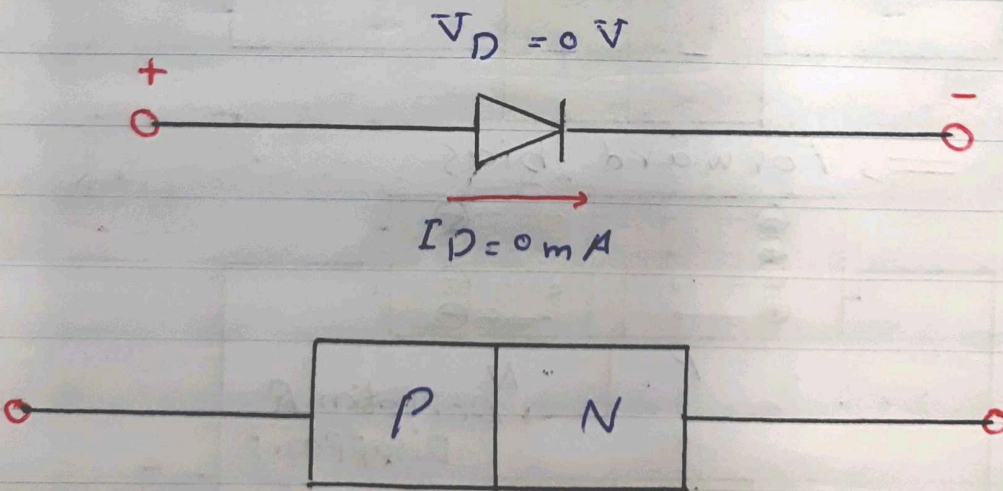 V_D = 0 V
+ -
I_D = 0 mA
P N